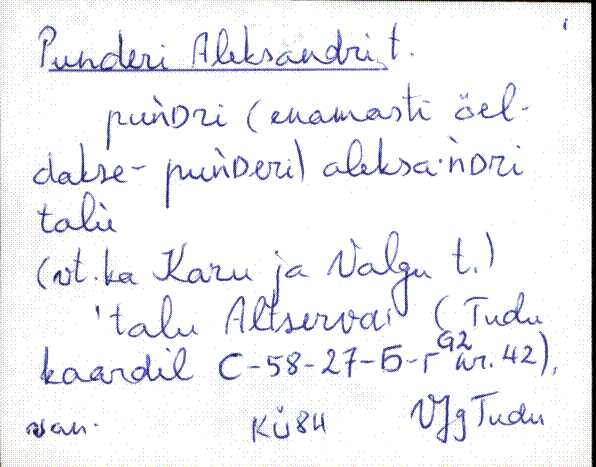 Punderi Aleksandri t.
puǹDri (enamasti öel-
dakse - puǹDeri) aleksa·ǹDri
talù
(vt. ka Karu ja Valgu t.)
'talu Altserval (Tudu
kaardil C-58-27-Б-г G2 nr. 42),
van. KÜ84 VJg Tudu